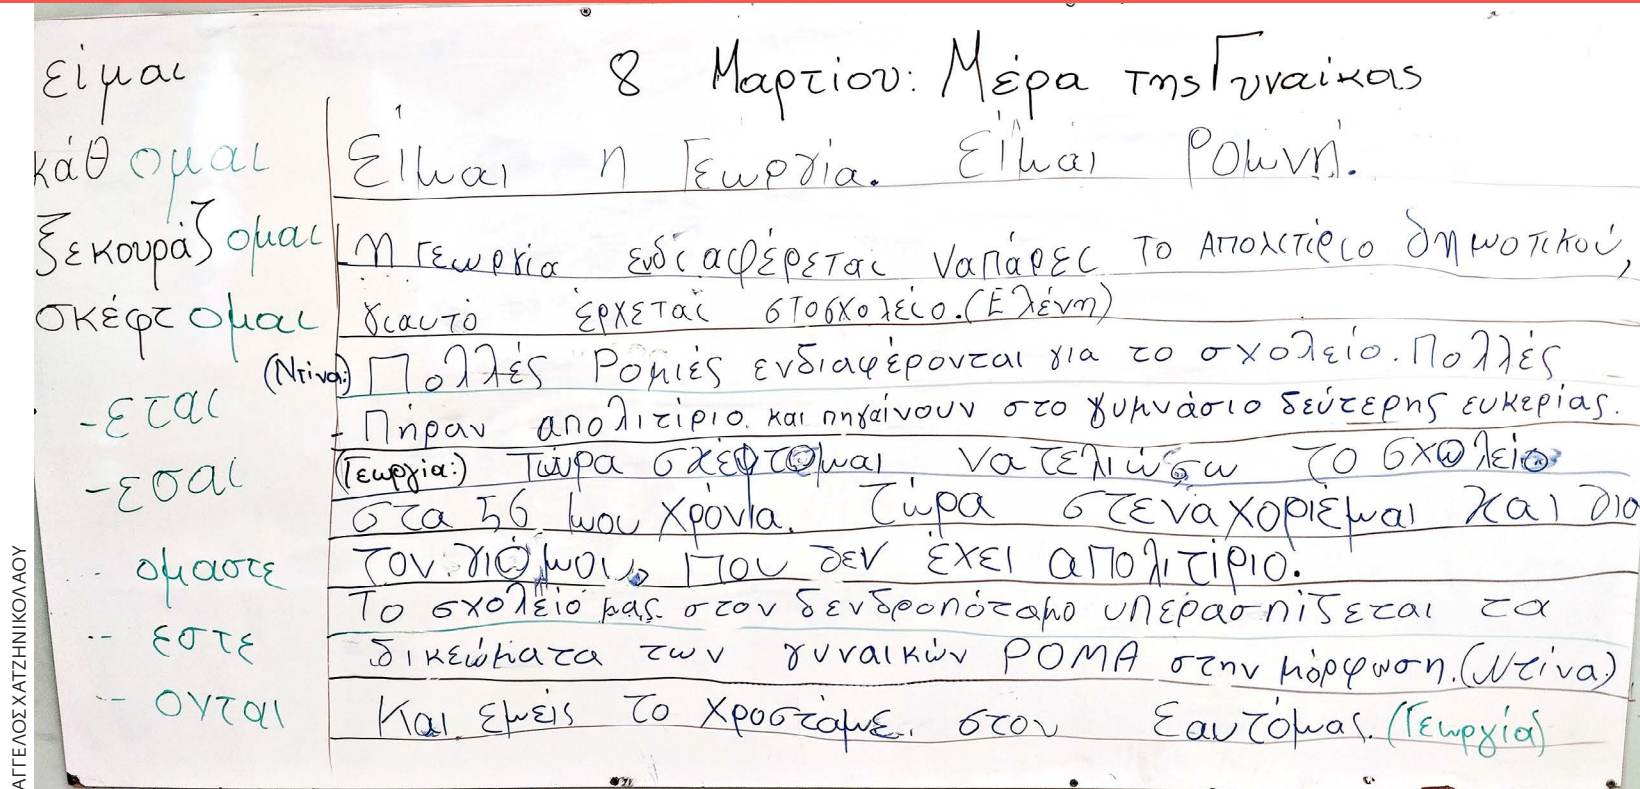 είμαι
κάθομαι
ξεκουράζομαι
σκέφτομαι
-εται
-εσαι
ομαστε
εστε
ονται
8 Μαρτίου: Μέρα της Γυναίκας
Είμαι η Γεωργία. Είμαι Ρομνή.
Η Γεωργία ενδιαφέρεται ναπάρει το απολιτίριο δημοτικού,
γιαυτό έρχεται στοσχολείο. (Ελένη)
(Ντίνα:) Πολλές Ρομιές ενδιαφέρονται για το σχολείο. Πολλές
- Πήραν απολιτίριο και πηγαίνουν στο γυμνάσιο δεύτερης ευκερίας.
(Γεωργία:) Τώρα σκέφτομαι νατελιώσω το σχολείο
στα 56 μου χρόνια. Τώρα στεναχοριέμαι και για
τον γιόμου, που δεν έχει απολιτίριο.
Το σχολείο μας στον δενδροπόταμο υπερασπίζεται τα
δικεώματα των γυναικών ΡΟΜΑ στην μόρφωση. (Ντίνα)
Και εμείς το χροστάμε στον εαυτόμας. (Γεωργία)
ΑΓΓΕΛΟΣ ΧΑΤΖΗΝΙΚΟΛΑΟΥ